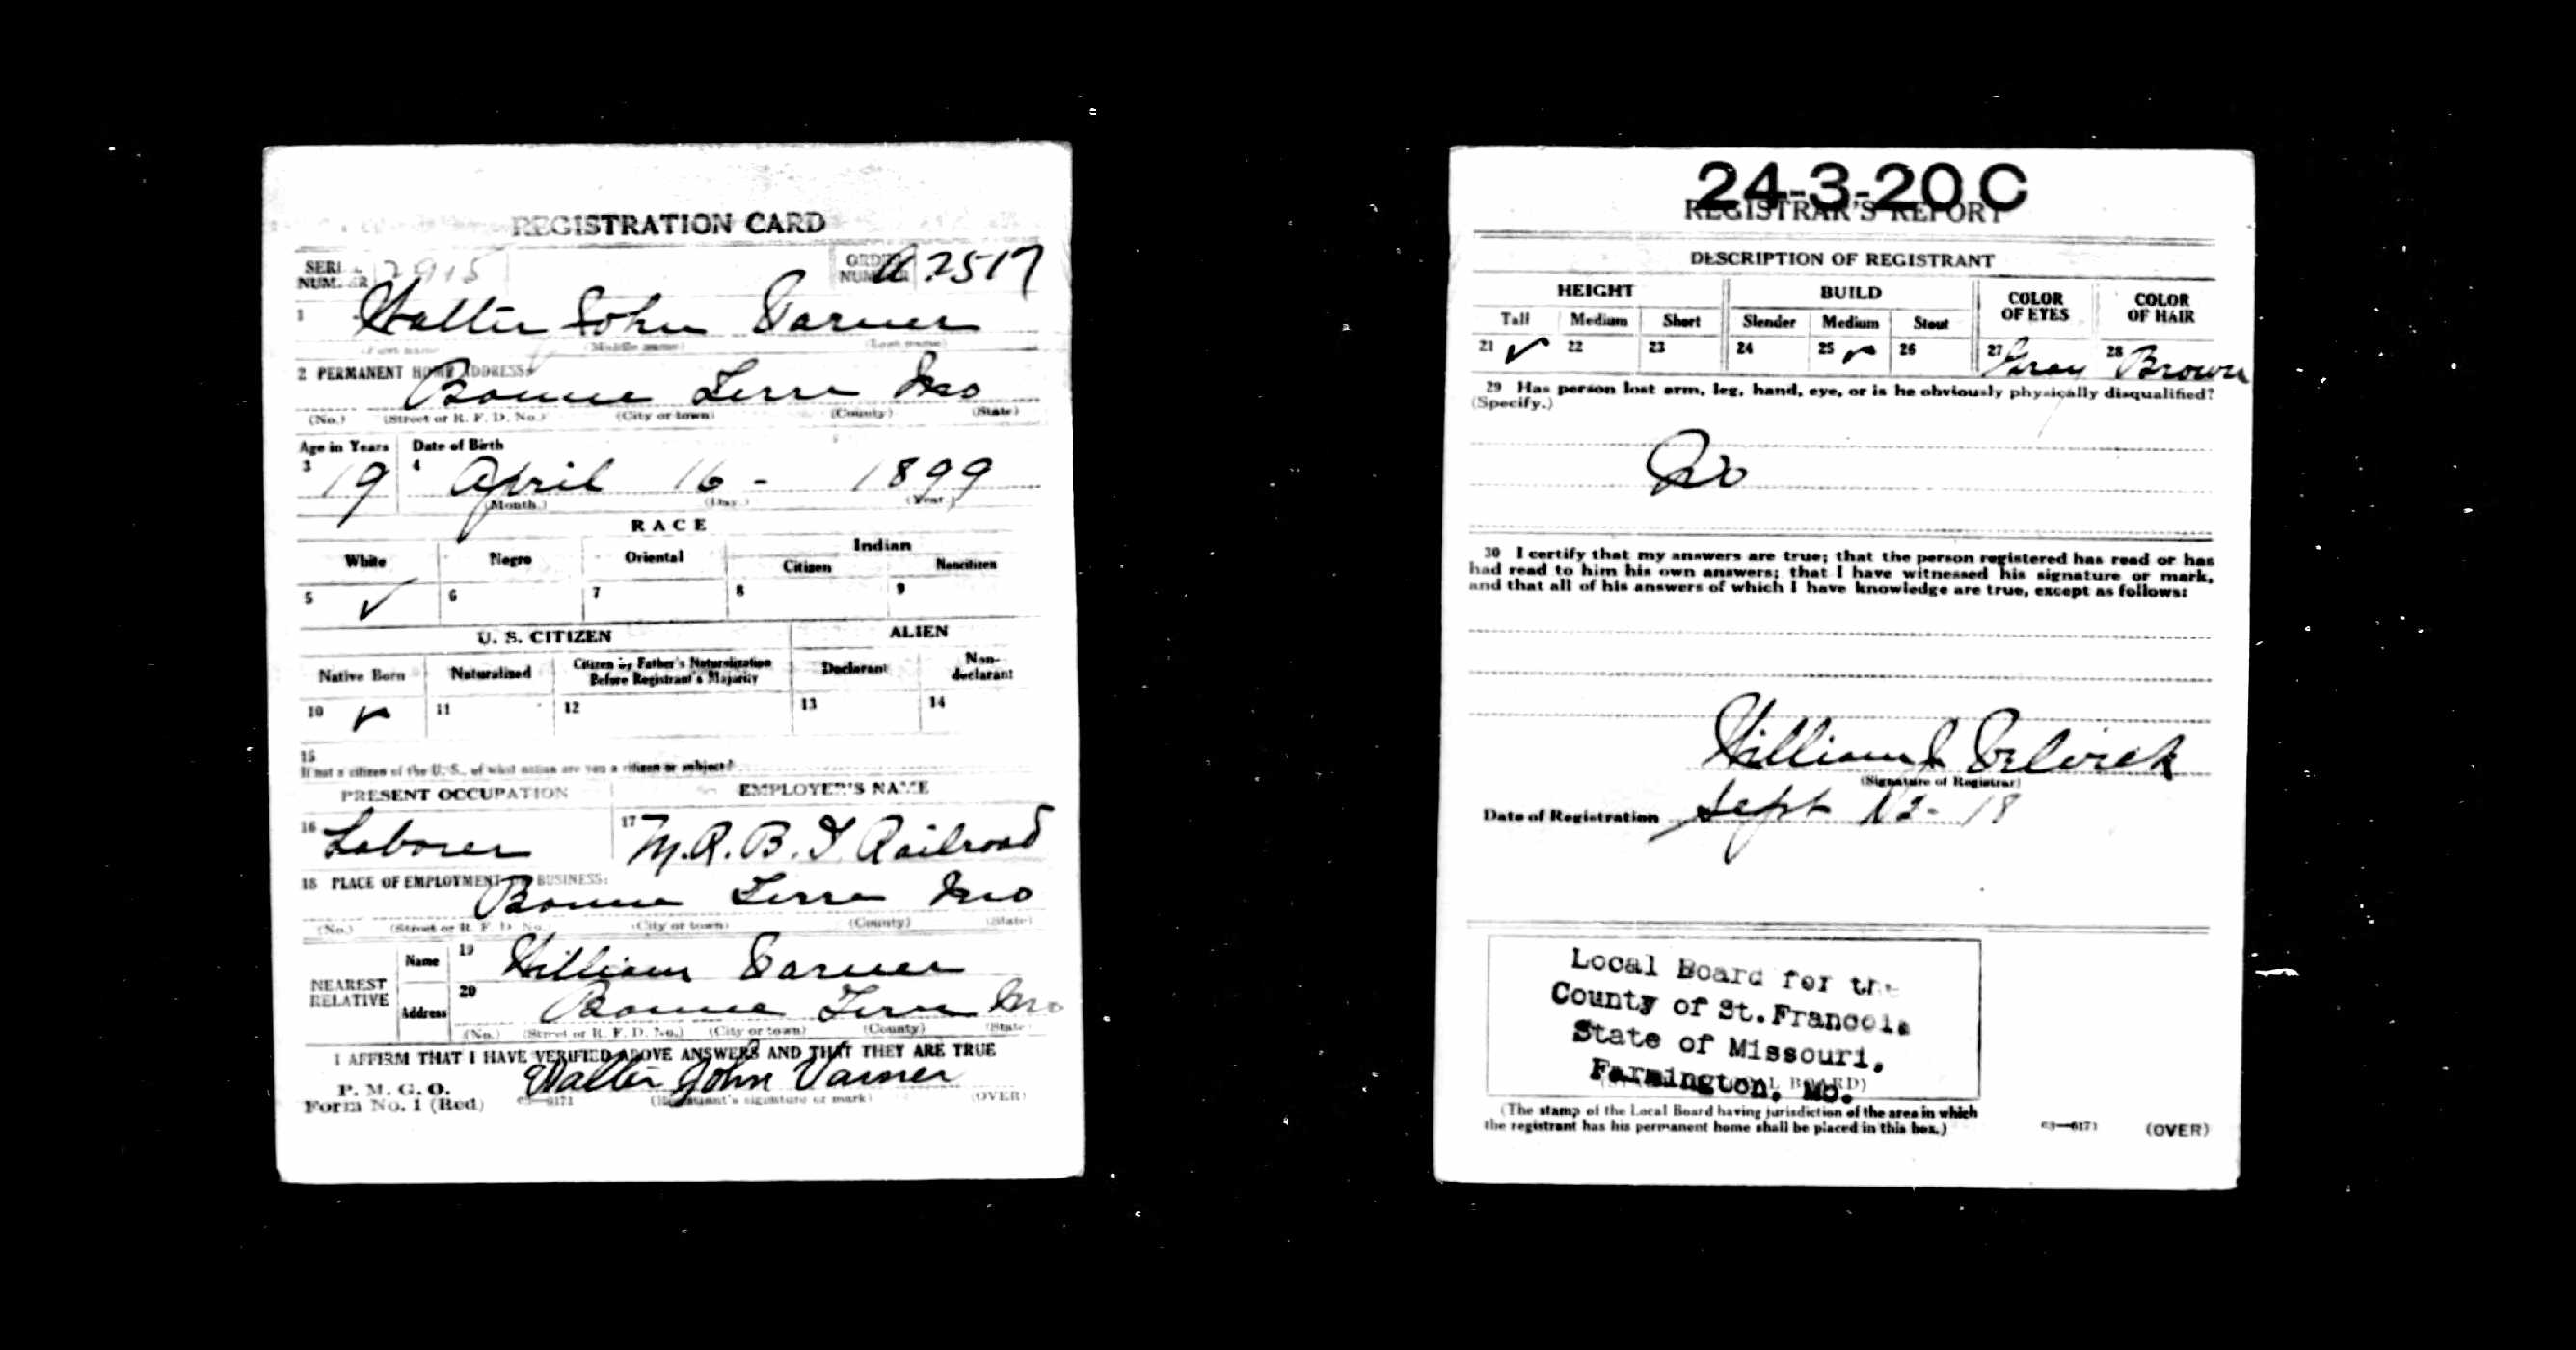 REGISTRATION CARD
SERIAL NUMBER 2915 ORDER NUMBER A2517
1 Walter John Varner
(First name) (Middle name) (Last name)
2 PERMANENT HOME ADDRESS:
Bonne Terre Mo
(No.) (Street or R. F. D. No.) (City or town) (County) (State)
Age in Years Date of Birth
3 19 4 April 16 - 1899
(Month.) (Day.) (Year.)
RACE
White Negro Oriental Indian
Citizen Noncitizen
5 ✓ 6 7 8 9
U. S. CITIZEN ALIEN
Native Born Naturalized Citizen by Father's Naturalization Before Registrant's Majority Declarant Non-declarant
10 ✓ 11 12 13 14
15
If not a citizen of the U. S., of what nation are you a citizen or subject?
PRESENT OCCUPATION EMPLOYER'S NAME
16 Laborer 17 M.R.B.T. Railroad
18 PLACE OF EMPLOYMENT OR BUSINESS:
Bonne Terre Mo
(No.) (Street or R. F. D. No.) (City or town) (County) (State)
NEAREST RELATIVE Name 19 William Varner
Address 20 Bonne Terre Mo
(No.) (Street or R. F. D. No.) (City or town) (County) (State)
I AFFIRM THAT I HAVE VERIFIED ABOVE ANSWERS AND THAT THEY ARE TRUE
P. M. G. O.
Form No. 1 (Red) c3—6171 Walter John Varner
(Registrant's signature or mark) (OVER)
24-3-20 C
REGISTRAR'S REPORT
DESCRIPTION OF REGISTRANT
HEIGHT BUILD COLOR OF EYES COLOR OF HAIR
Tall Medium Short Slender Medium Stout
21 ✓ 22 23 24 25 ✓ 26 27 Gray 28 Brown
29 Has person lost arm, leg, hand, eye, or is he obviously physically disqualified?
(Specify.)
No
30 I certify that my answers are true; that the person registered has read or has
had read to him his own answers; that I have witnessed his signature or mark,
and that all of his answers of which I have knowledge are true, except as follows:
William J
(Signature of Registrar)
Date of Registration Sept 12 - 18
Local Board for the
County of St. Francois
State of Missouri,
Farmington, Mo.
(The stamp of the Local Board having jurisdiction of the area in which
the registrant has his permanent home shall be placed in this box.)
c3—6171 (OVER)